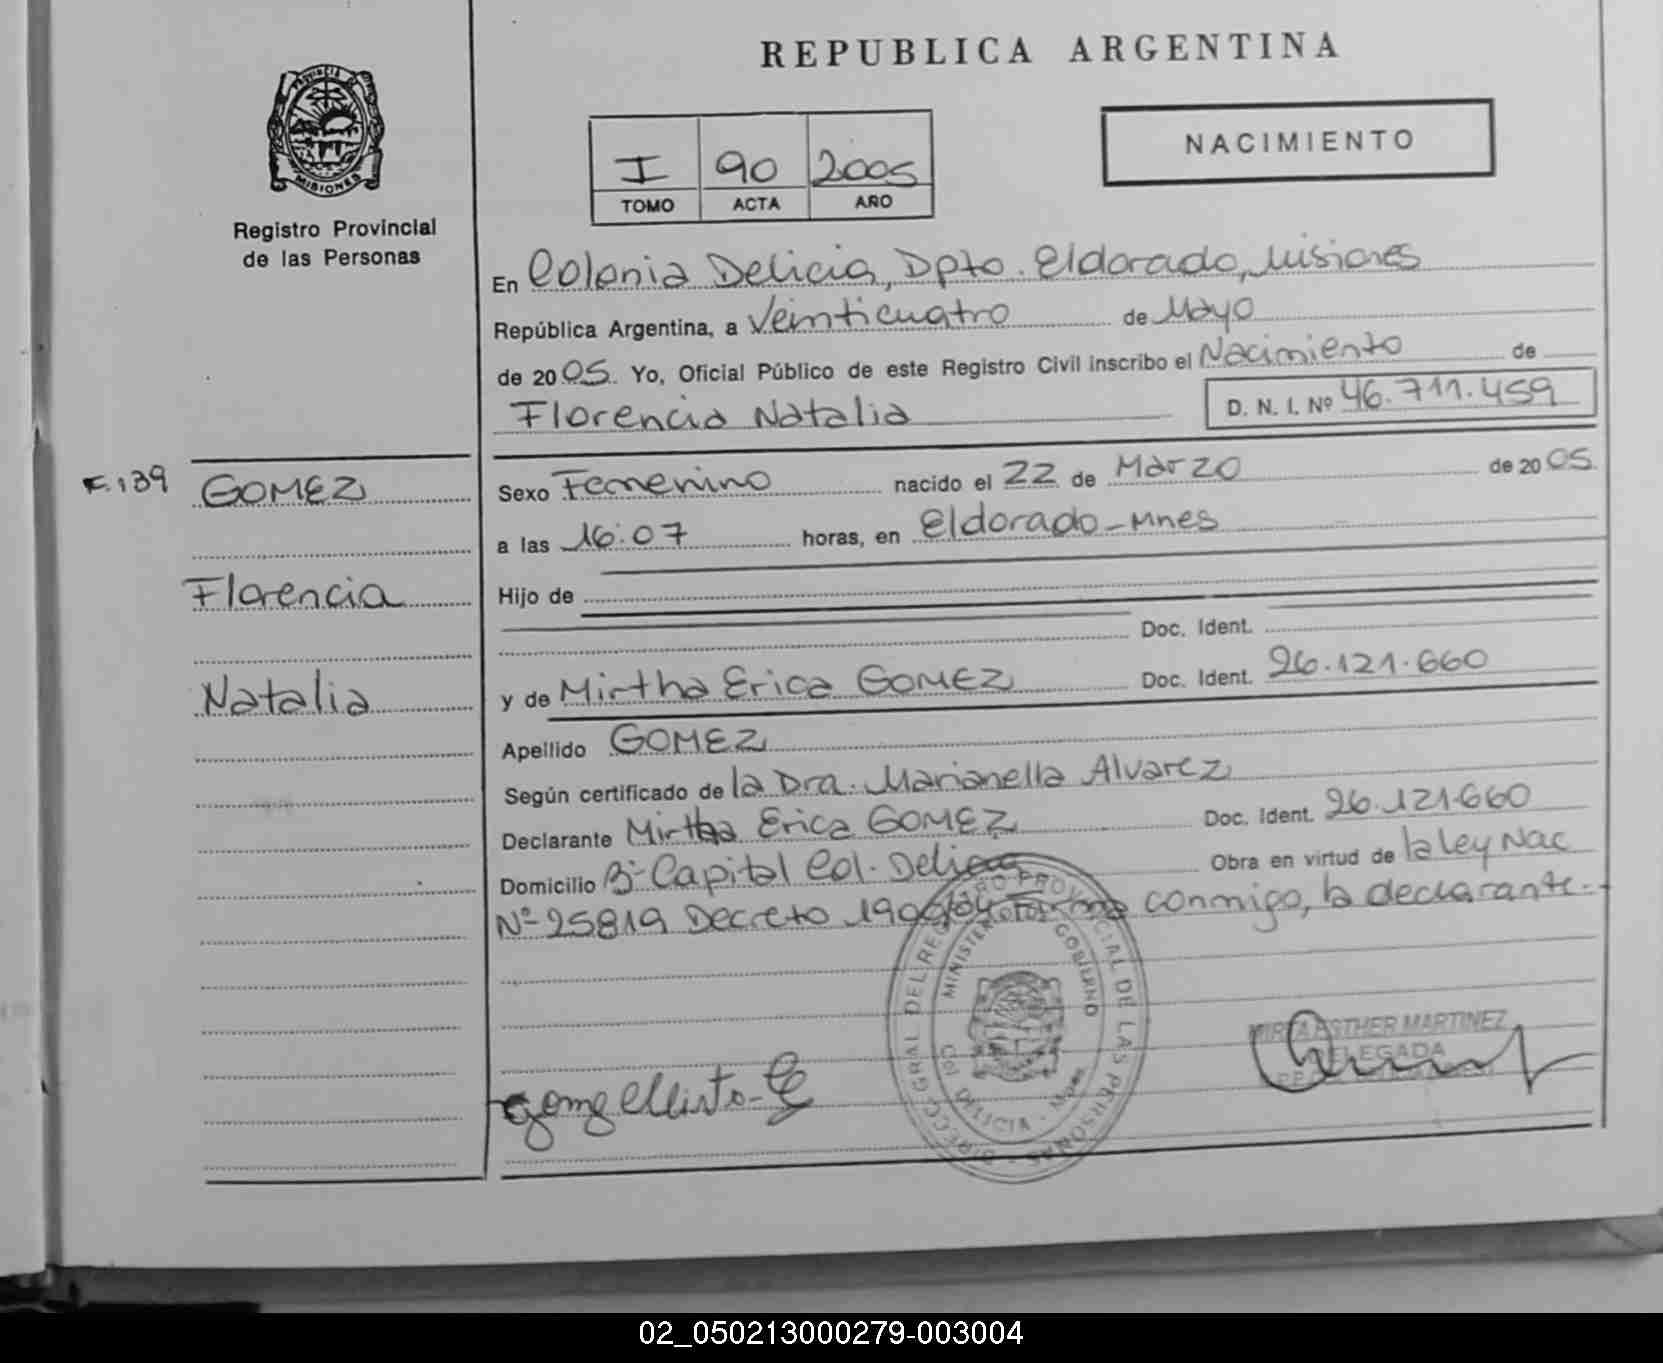 REPUBLICA ARGENTINA
PROVINCIA DE
MISIONES
Registro Provincial
de las Personas
I 90 2005
TOMO ACTA AÑO
NACIMIENTO
En Colonia Delicia, Dpto. Eldorado, Misiones
República Argentina, a Veinticuatro de Mayo
de 2005. Yo, Oficial Público de este Registro Civil inscribo el Nacimiento de
Florencia Natalia D. N. I. Nº 46.711.459
F.139
GOMEZ
Florencia
Natalia
Sexo Femenino nacido el 22 de Marzo de 2005.
a las 16:07 horas, en Eldorado-Mnes
Hijo de
Doc. Ident.
y de Mirtha Erica GOMEZ Doc. Ident. 26.121.660
Apellido GOMEZ
Según certificado de la Dra. Marianella Alvarez
Declarante Mirtha Erica GOMEZ Doc. Ident. 26.121.660
Domicilio Bº Capital Col. Delicia Obra en virtud de la ley Nac
Nº 25819 Decreto conmigo, la declarante.-
DIRECC. GRAL DEL REGISTRO PROVINCIAL DE LAS PERSONAS
MINISTERIO GOBIERNO
Col DELICIA - Mnes
MIRTA ESTHER MARTINEZ
DELEGADA
02_050213000279-003004